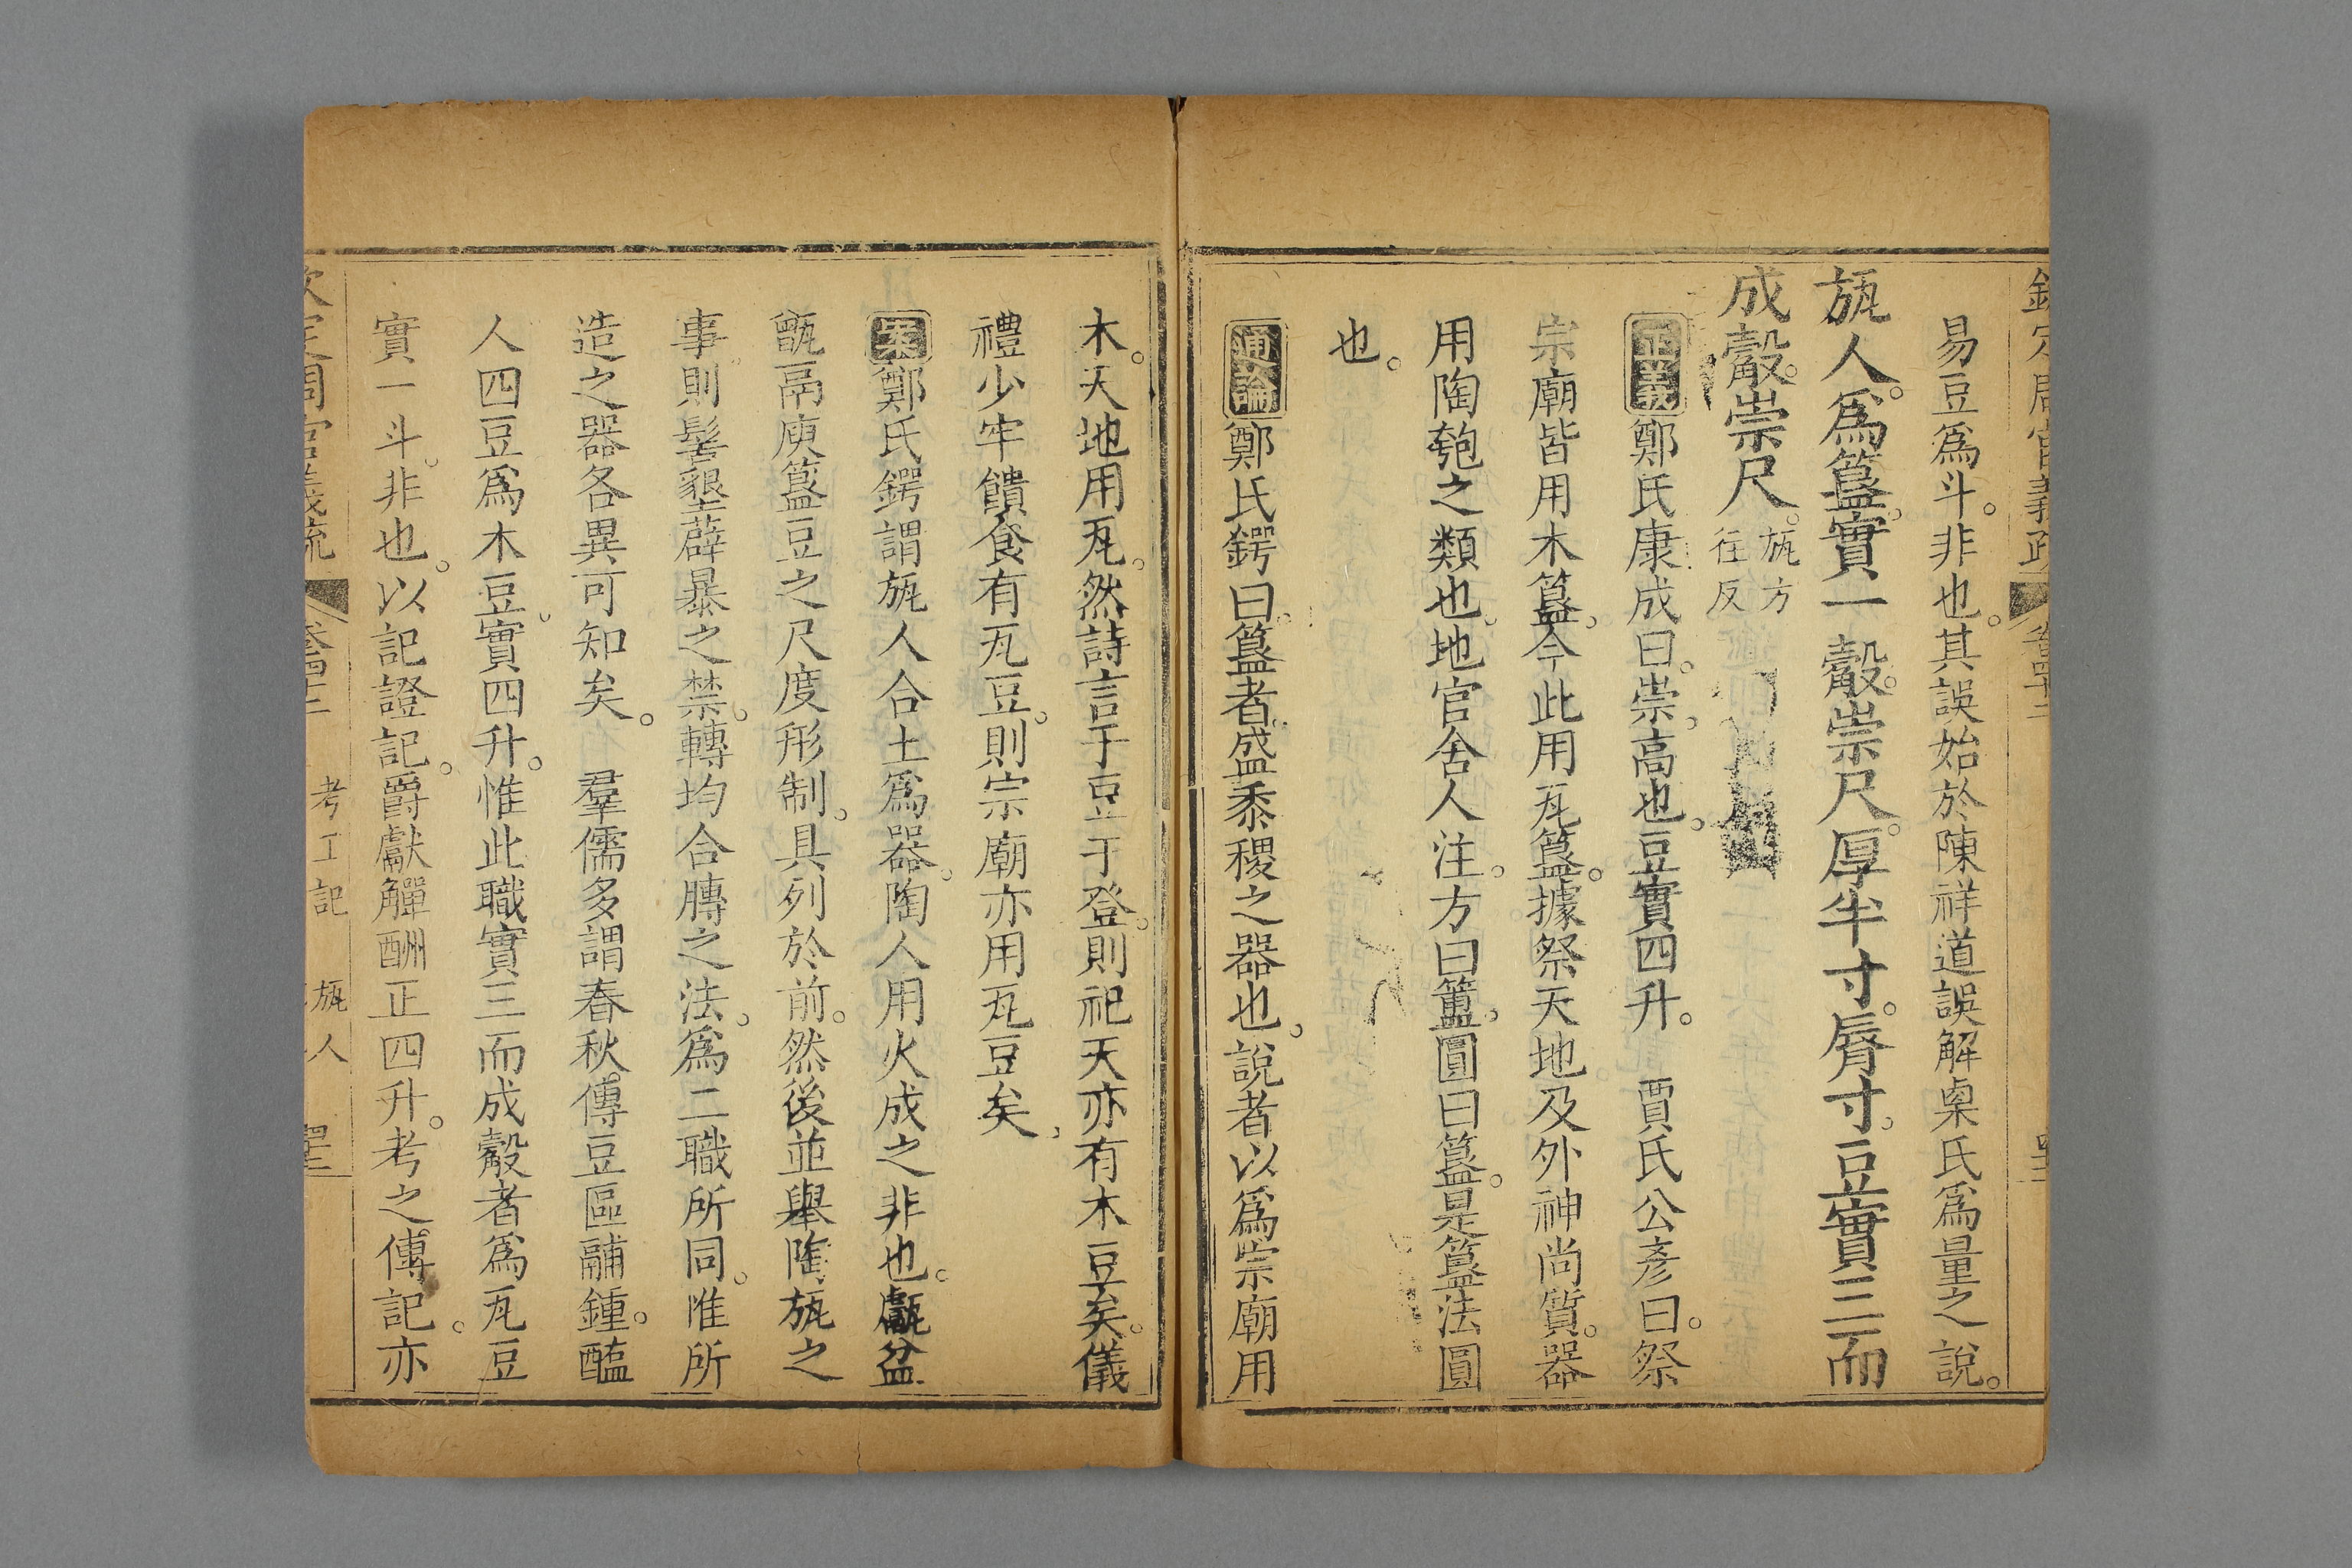 易豆爲斗。非也。其誤始於陳祥道誤解㮚氏爲量之說。
瓬人。爲簋。實一觳。崇尺。厚半寸。脣寸。豆實三而
成觳。崇尺。瓬方往反
正義鄭氏康成曰。崇。高也。豆實四升。 賈氏公彥曰。祭
宗廟皆用木簋。今此用瓦簋。據祭天地及外神尚質。器
用陶匏之類也。地官舍人注。方曰簠。圓曰簋。是簋法圓
也。
通論鄭氏鍔曰。簋者。盛黍稷之器也。說者以爲宗廟用
木。天地用瓦。然詩言于豆于登。則祀天亦有木豆矣。儀
禮少牢饋食有瓦豆。則宗廟亦用瓦豆矣。
案鄭氏鍔謂瓬人合土爲器。陶人用火成之。非也。甗盆
甑鬲庾簋豆之尺度形制。具列於前。然後並舉陶瓬之
事。則髺墾薜暴之禁。轉均合膞之法。爲二職所同。惟所
造之器各異可知矣。 羣儒多謂春秋傳豆區鬴鍾。醢
人四豆爲木豆。實四升。惟此職實三而成觳者爲瓦豆
實一斗。非也。以記證記。爵獻觶酬正四升。考之傳記。亦
欽定周官義疏 卷四十二 考工記 瓬人